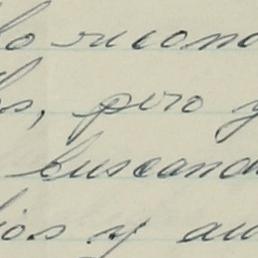 lo recono
os, pero y
buscand
ios y au